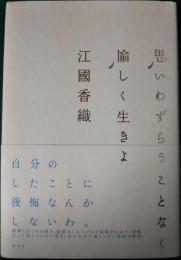 思いわずらうことなく
愉しく生きよ
江國香織
自分の
したことに
後悔なんか
しないわ。